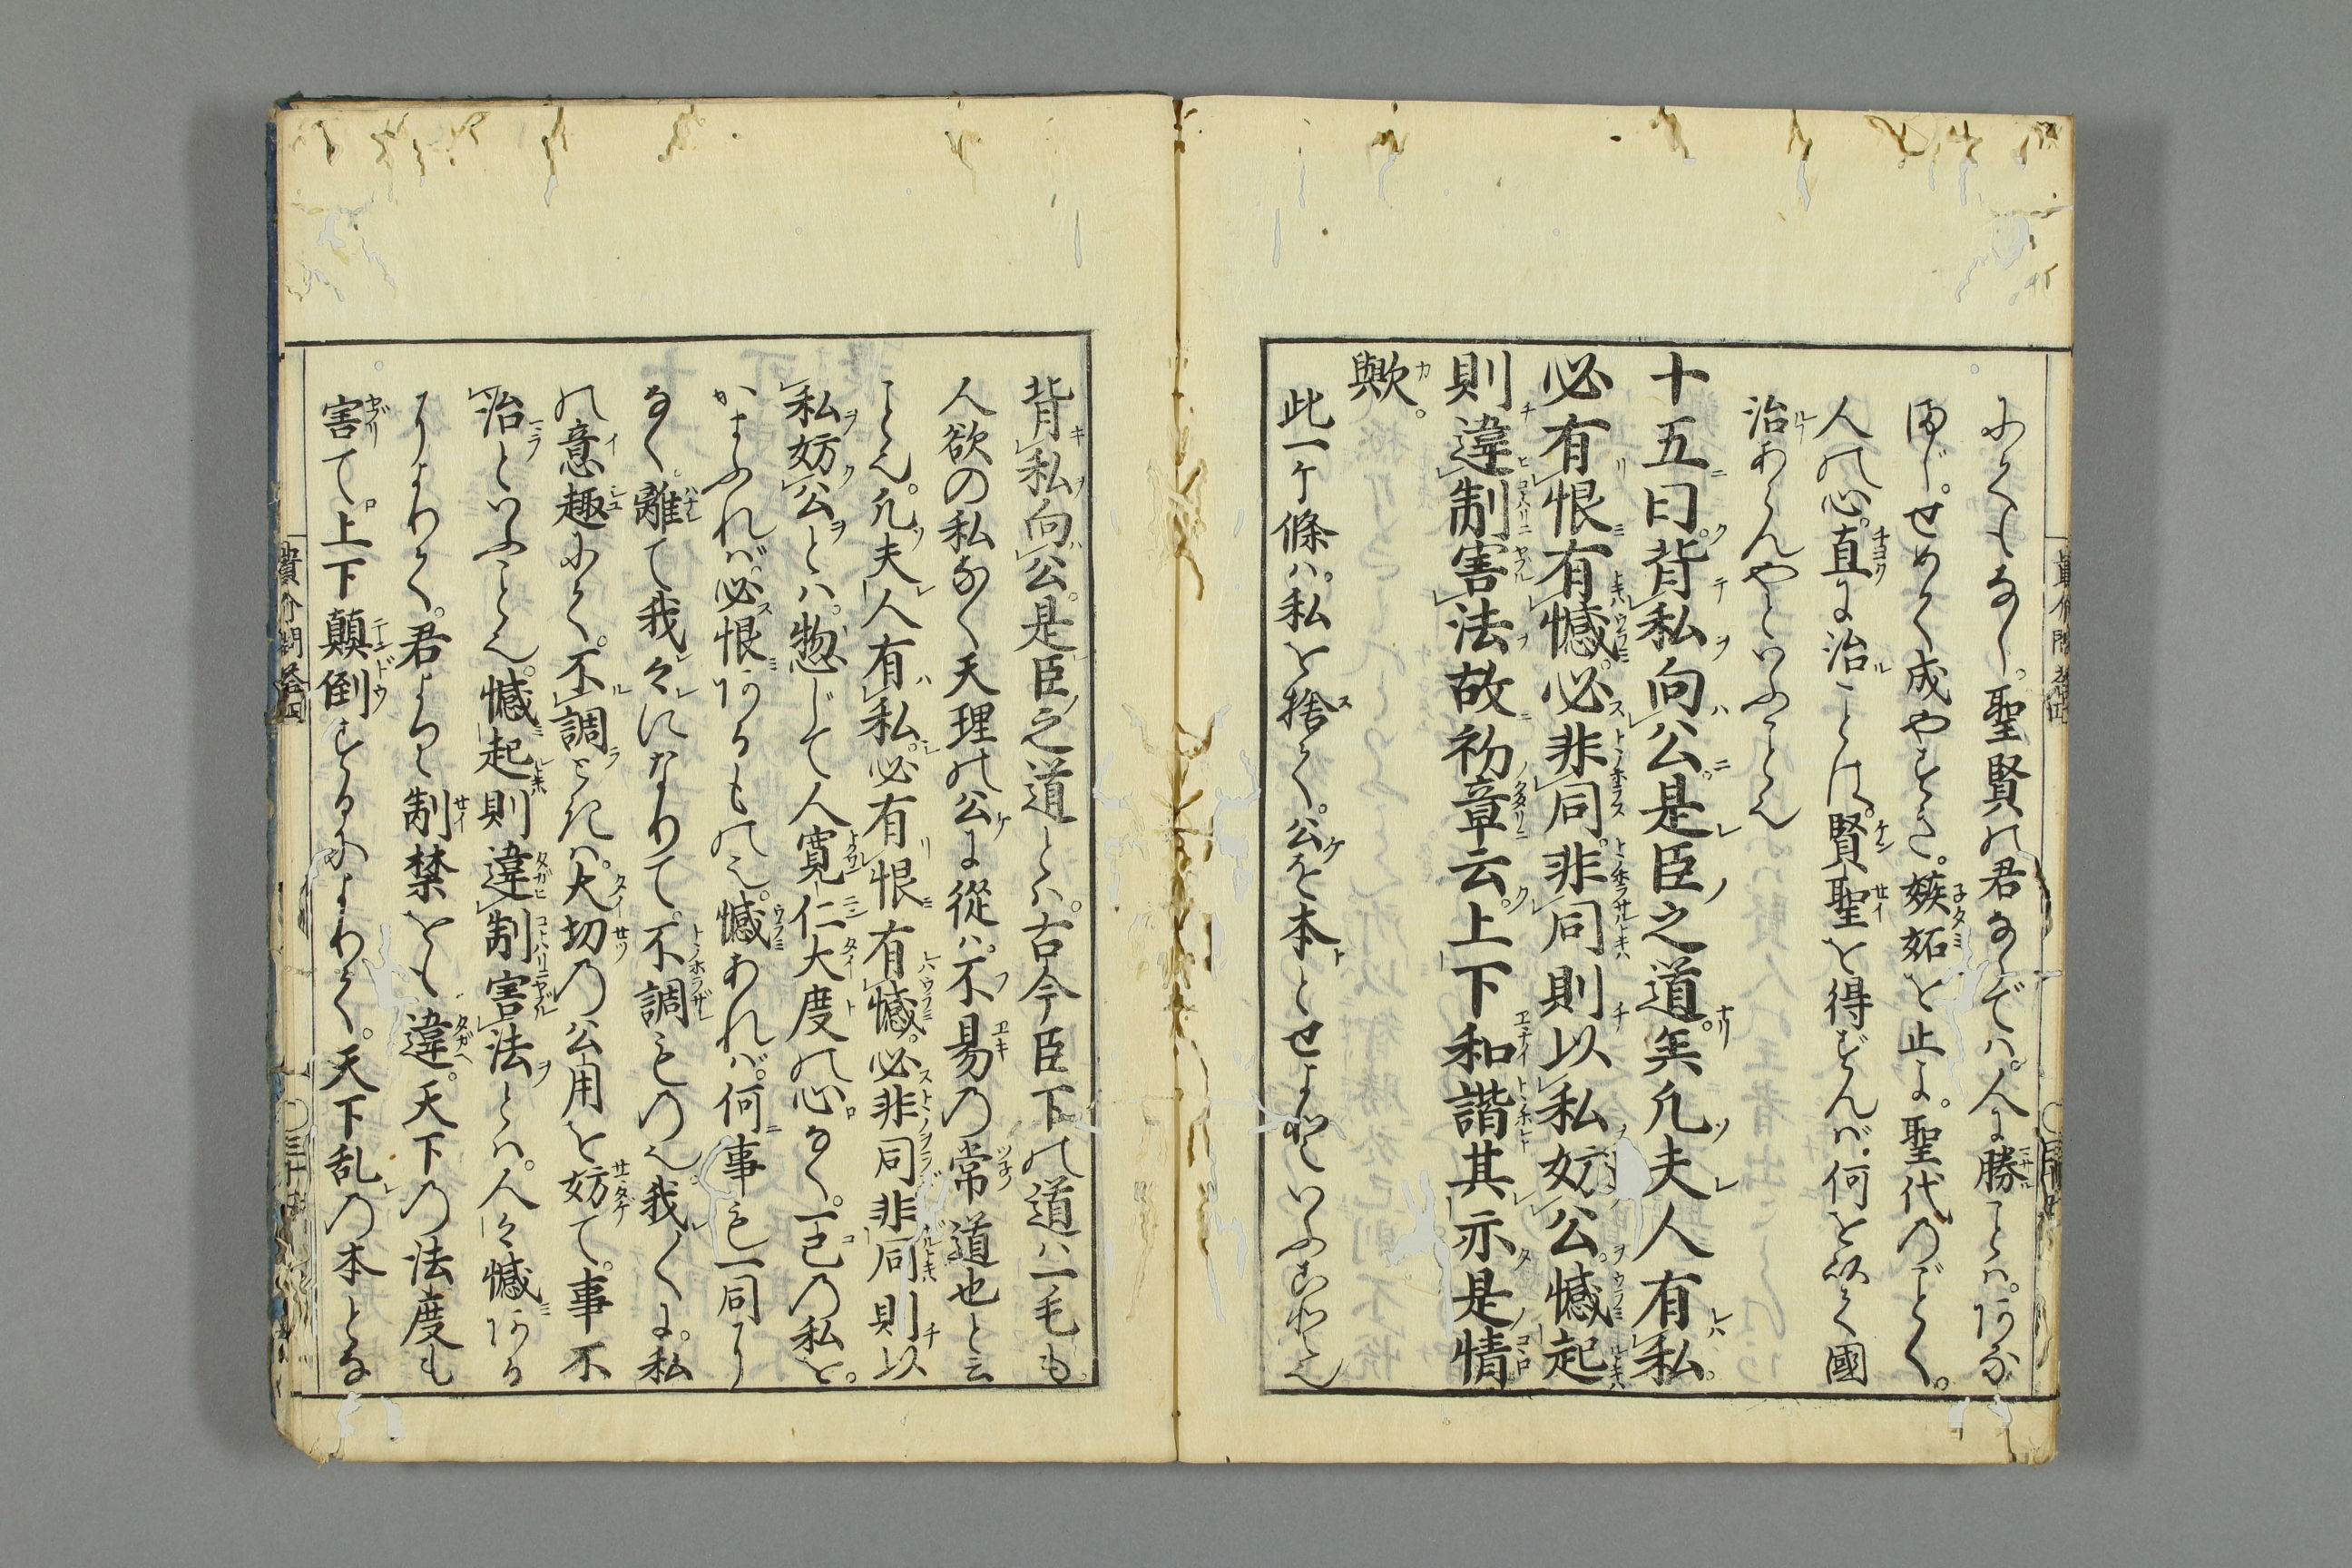 にくもなし。聖賢の君ならでハ。人に勝ことハ。いかな
成やすき。嫉妬を止に。聖代のごとく。
人の心。直に治ことは。賢聖を得ずんバ。何を以て國
治あらんやといふこと也
十五曰。背私向公。是臣之道矣。凡夫人有私。
必有恨有憾。必非同。非同則以私妨公。憾起
則違制害法故初章云。上下和諧其亦是情
歟。
此一ケ條ハ。私を捨て。公を本とせよとといふこと也
背私向公。是臣之道とハ。古今臣下の道ハ一毛も。
人欲の私なく天理の公に從ハ。不易の常道也と云
こと也。凡夫人有私。必有恨有憾。必非同非同則以
私妨公とハ。惣じて人寛仁大度の心なく。一己の私を。
かまふれバ。必恨いかるもの也。憾あれバ。何事も一同
なく。離て我々になりて。不調もの也。我々に。私
の意趣にて。不調ときハ。大切の公用を妨て。事不
治といふこと也。憾起則違制害法とハ。人々憾いかる
によりて。君よりの制禁をも違。天下の法度も
害て。上下顛倒するによりて。天下乱の本とな